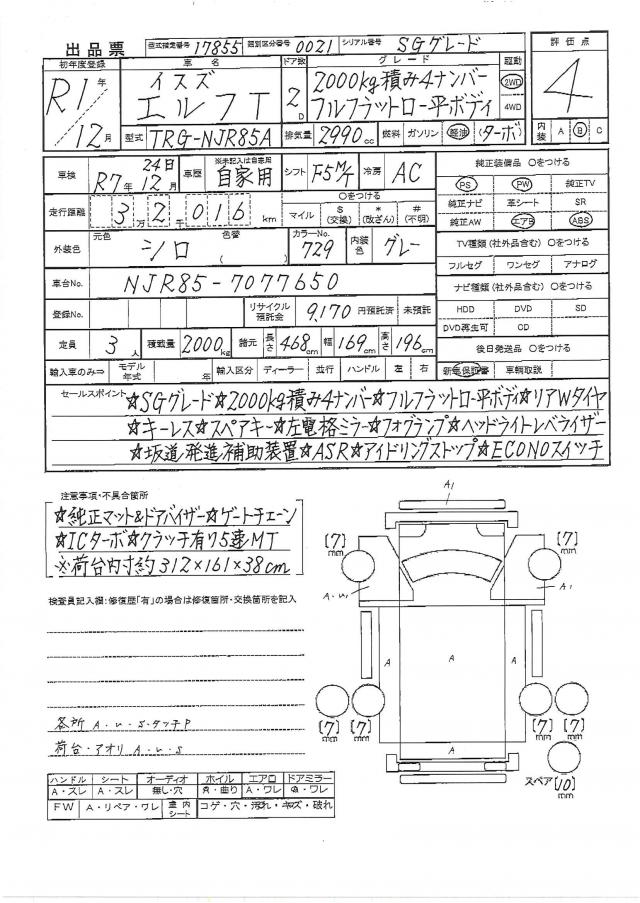 出品票 型式指定番号 17855 類別区分番号 0021 シリアル番号 SGグレード
初年度登録 車名 ドア数 グレード 駆動 評価点
R1年 イスズ 2000kg積み4ナンバー 2WD
12月 エルフT 2D フルフラットロー平ボディ 4WD 4
型式 TRG-NJR85A 排気量 2990cc 燃料 ガソリン 軽油 (ターボ) 内装 A B C
車検 R7年 12月 24日 車歴 ※未記入は自家用 自家用 シフト F5M/T 冷房 AC 純正装備品 ○をつける
PS PW 純正TV
走行距離 3万2千016km ○をつける マイル $(交換) *(改ざん) #(不明) 純正ナビ 革シート SR
純正AW エアB ABS
外装色 元色 シロ 色替( ) カラーNo. 729 内装色 グレー TV種類(社外品含む) ○をつける
フルセグ ワンセグ アナログ
車台No. NJR85-7077650 ナビ種類(社外品含む) ○をつける
登録No. リサイクル預託金 9,170円預託済 未預託 HDD DVD SD
DVD再生可 CD
定員 3人 積載量 2000kg 諸元 長さ 468cm 幅 169cm 高さ 196cm 後日発送品 ○をつける
輸入車のみ⇒ モデル年式 年 輸入区分 ディーラー 並行 ハンドル 左 右 新車保証書 車輌取説
セールスポイント ☆SGグレード☆2000kg積み4ナンバー☆フルフラットロー平ボディ☆リアWタイヤ
☆キーレス☆スペアキー☆左電格ミラー☆フォグランプ☆ヘッドライトレベライザー
☆坂道発進補助装置☆ASR☆アイドリングストップ☆ECONOスイッチ
注意事項・不具合箇所
☆純正マット&ドアバイザー☆ゲートチェーン
☆ICターボ☆クラッチ有り5速MT
※荷台内寸約312×161×38cm
検査員記入欄:修復歴「有」の場合は修復箇所・交換箇所を記入
各所 A・U・S・タッチP
荷台・アオリ A・U・S
A1
[7]mm [7]mm
A・U1 A1
A A A
[7]mm [7]mm [7]mm [7]mm
A
スペア [10]mm
ハンドル シート オーディオ ホイル エアロ ドアミラー
A・スレ A・スレ 無し・穴 A・曲り A・ワレ A・ワレ
FW A・リペア・ワレ 室内シート コゲ・穴・汚れ・キズ・破れ